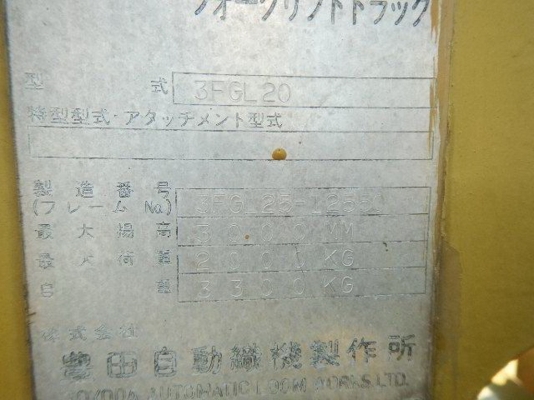 フォークリフトトラック
型 式 3FGL20
特型型式・アタッチメント型式
製造番号
(フレームNo.)
最大揚高 3000MM
最大荷重 2000KG
自重 3300KG
株式会社
豊田自動織機製作所
TOYODA AUTOMATIC LOOM WORKS.LTD.